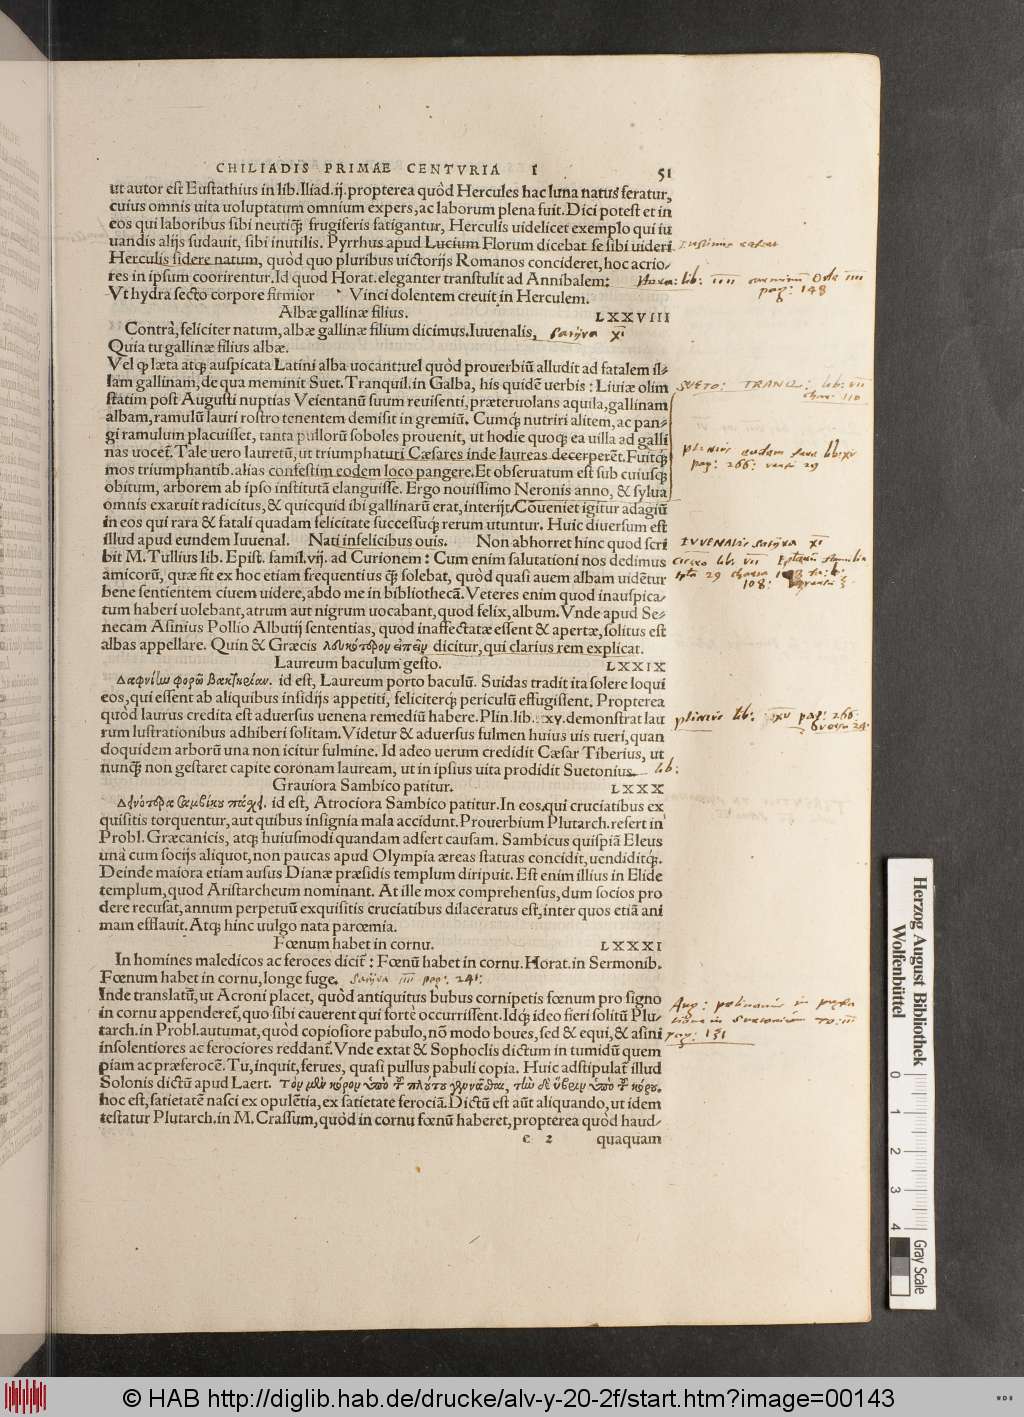 CHILIADIS PRIMAE CENTVRIA I 51
ut autor est Eustathius in lib. Iliad. ij. propterea quòd Hercules hac luna natus feratur,
cuius omnis uita uoluptatum omnium expers, ac laborum plena fuit. Dici potest et in
eos qui laboribus sibi neutiq̃ frugiferis fatigantur, Herculis uidelicet exemplo qui iu
uandis alijs sudauit, sibi inutilis. Pyrrhus apud Lucium Florum dicebat se sibi uideri
Herculis sidere natum, quòd quo pluribus uictorijs Romanos concideret, hoc acrio-
res in ipsum coorirentur. Id quod Horat. eleganter transtulit ad Annibalem:
Hora: lib: IIII carminum Ode IIII
pag: 148
Vt hydra secto corpore firmior Vinci dolentem creuit in Herculem.
Albæ gallinæ filius. LXXVIII
Contrà, feliciter natum, albæ gallinæ filium dicimus. Iuuenalis, Satyra XI
Quia tu gallinæ filius albæ.
Vel q̃ læta atq; auspicata Latini alba uocant: uel quòd prouerbiũ alludit ad fatalem il-
lam gallinam, de qua meminit Suet. Tranquil. in Galba, his quidẽ uerbis: Liuiæ olim
SVETO: TRANQ: lib: VII
statim post Augusti nuptias Veientanũ suum reuisenti, præteruolans aquila, gallinam
albam, ramulũ lauri rostro tenentem demisit in gremiũ. Cumq; nutriri alitem, ac pan-
gi ramulum placuisset, tanta pullorũ soboles prouenit, ut hodie quoq; ea uilla ad galli
nas uocet̃. Tale uero lauretũ, ut triumphaturi Cæsares inde laureas decerperẽt. Fuitq;
mos triumphantib. alias confestim eodem loco pangere. Et obseruatum est sub cuiusq;
pag: 266: 29
obitum, arborem ab ipso institutã elanguisse. Ergo nouissimo Neronis anno, & sylua
omnis exaruit radicitus, & quicquid ibi gallinarũ erat, interijt. Cõueniet igitur adagiũ
in eos qui rara & fatali quadam felicitate successuq; rerum utuntur. Huic diuersum est
illud apud eundem Iuuenal. Nati infelicibus ouis. Non abhorret hinc quod scri
IVVENALIS Satyra XI
bit M. Tullius lib. Epist. famil. vij. ad Curionem: Cum enim salutationi nos dedimus
amicorũ, quæ fit ex hoc etiam frequentius q̃ solebat, quòd quasi auem albam uidẽtur
bene sentientem ciuem uidere, abdo me in bibliothecã. Veteres enim quod inauspica-
tum haberi uolebant, atrum aut nigrum uocabant, quod felix, album. Vnde apud Se-
necam Asinius Pollio Albutij sententias, quod inaffectatæ essent & apertæ, solitus est
albas appellare. Quin & Græcis λευκότερον εἰπεῖν dicitur, qui clarius rem explicat.
Laureum baculum gesto. LXXIX
Δαφνίνην φορῶ βακτηρίαν. id est, Laureum porto baculũ. Suidas tradit ita solere loqui
eos, qui essent ab aliquibus insidijs appetiti, feliciterq; periculũ effugissent. Propterea
quòd laurus credita est aduersus uenena remediũ habere. Plin. lib. xv. demonstrat lau
plinius lib: XV pag: 266
rum lustrationibus adhiberi solitam. Videtur & aduersus fulmen huius uis tueri, quan
doquidem arborũ una non icitur fulmine. Id adeo uerum credidit Cæsar Tiberius, ut
nunq̃ non gestaret capite coronam lauream, ut in ipsius uita prodidit Suetonius. lib:
Grauiora Sambico patitur. LXXX
Δεινότερα Σαμβίκου πάσχει. id est, Atrociora Sambico patitur. In eos, qui cruciatibus ex
quisitis torquentur, aut quibus insignia mala accidunt. Prouerbium Plutarch. refert in
Probl. Græcanicis, atq; huiusmodi quandam adfert causam. Sambicus quispiã Eleus
unà cum socijs aliquot, non paucas apud Olympia æreas statuas concidit, uendiditq;.
Deinde maiora etiam ausus Dianæ præsidis templum diripuit. Est enim illius in Elide
templum, quod Aristarcheum nominant. At ille mox comprehensus, dum socios pro
dere recusat, annum perpetuũ exquisitis cruciatibus dilaceratus est, inter quos etiã ani
mam efflauit. Atq; hinc uulgo nata parœmia.
Fœnum habet in cornu. LXXXI
In homines maledicos ac feroces dicit̃: Fœnũ habet in cornu. Horat. in Sermonib.
Fœnum habet in cornu, longe fuge. Satyra IIII pag: 241:
Inde translatũ, ut Acroni placet, quòd antiquitus bubus cornipetis fœnum pro signo
in cornu appenderet̃, quo sibi cauerent qui fortè occurrissent. Idq; ideo fieri solitũ Plu-
tarch. in Probl. autumat, quòd copiosiore pabulo, nõ modo boues, sed & equi, & asini
pag: 131
insolentiores ac ferociores reddant̃. Vnde extat & Sophoclis dictum in tumidũ quem
piam ac præferocẽ. Tu, inquit, ferues, quasi pullus pabuli copia. Huic adstipulat̃ illud
Solonis dictũ apud Laert. τὸν μὲν κόρον ὑπὸ τ͂ πλούτου γεννᾶσθαι, τὴν δὲ ὕβριν ὑπὸ τ͂ κόρου.
hoc est, satietatẽ nasci ex opulẽtia, ex satietate ferociã. Dictũ est aũt aliquando, ut idem
testatur Plutarch. in M. Crassum, quòd in cornu fœnũ haberet, propterea quòd haud-
c 2 quaquam
Herzog August Bibliothek
Wolfenbüttel
0 1 2 3 4
Gray Scale
© HAB http://diglib.hab.de/drucke/alv-y-20-2f/start.htm?image=00143